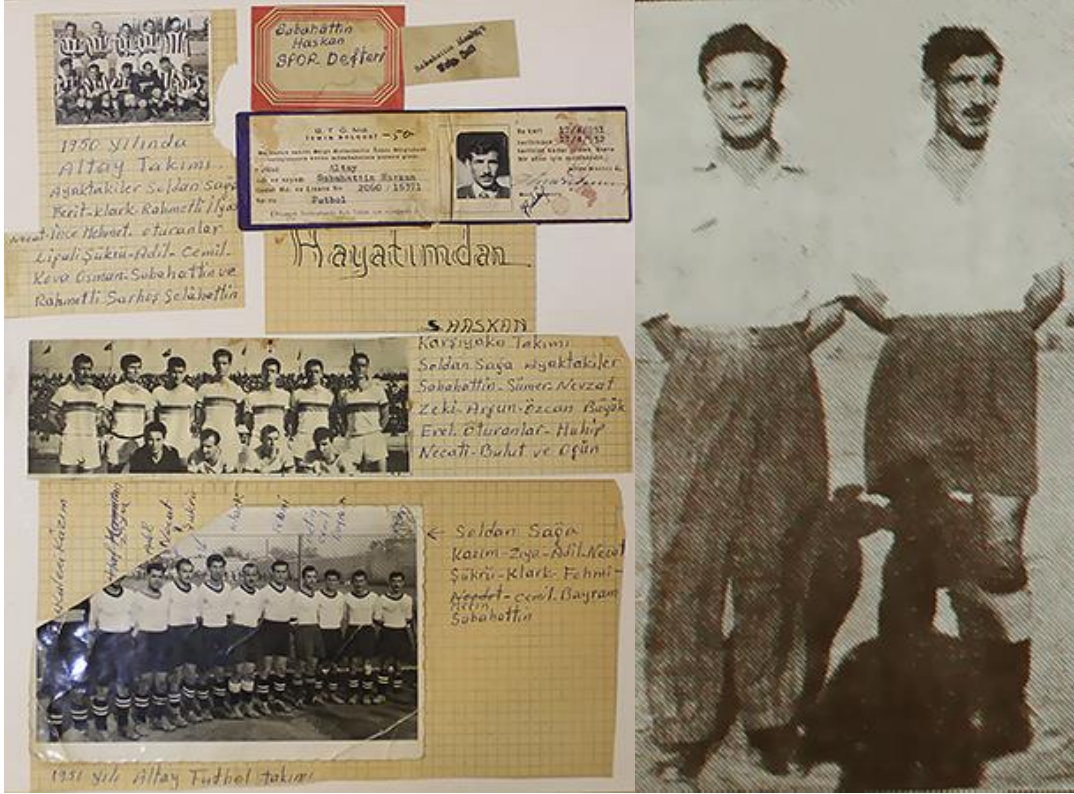 Sabahattin
Haskan
SPOR Defteri
1950 yılında
Altay Takımı.
Ayaktakiler Soldan Sağa
Ferit-Klark-Rahmetli İlyas
Necat-İnce Mehmet oturanlar
Lipali Şükrü-Adil-Cemil-
Kova Osman-Sabahattin ve
Rahmetli Sarhoş Selâhattin
B. T. G. Md.
İZMİR BÖLGESİ -50
Altay
Sabahattin Haskan
2060 / 15371
Futbol
Bu kart 17/4/951
tarihinden 17/4/952
Hayatımdan
S. HASKAN
Karşıyaka Takımı
Soldan Sağa Ayaktakiler
Sabahattin-Sümer-Nevzat
Zeki-Arşun-Özcan Büyük
Erel. Oturanlar-Muhip
Necati-Bulut ve Ogün
Kaleci Kâzım
← Soldan Sağa
Kazım-Ziya-Adil-Necat
Şükrü-Klark-Fehmi-
Metin
Cemil. Bayram
Sabahattin
1951 Yılı Altay Futbol takımı